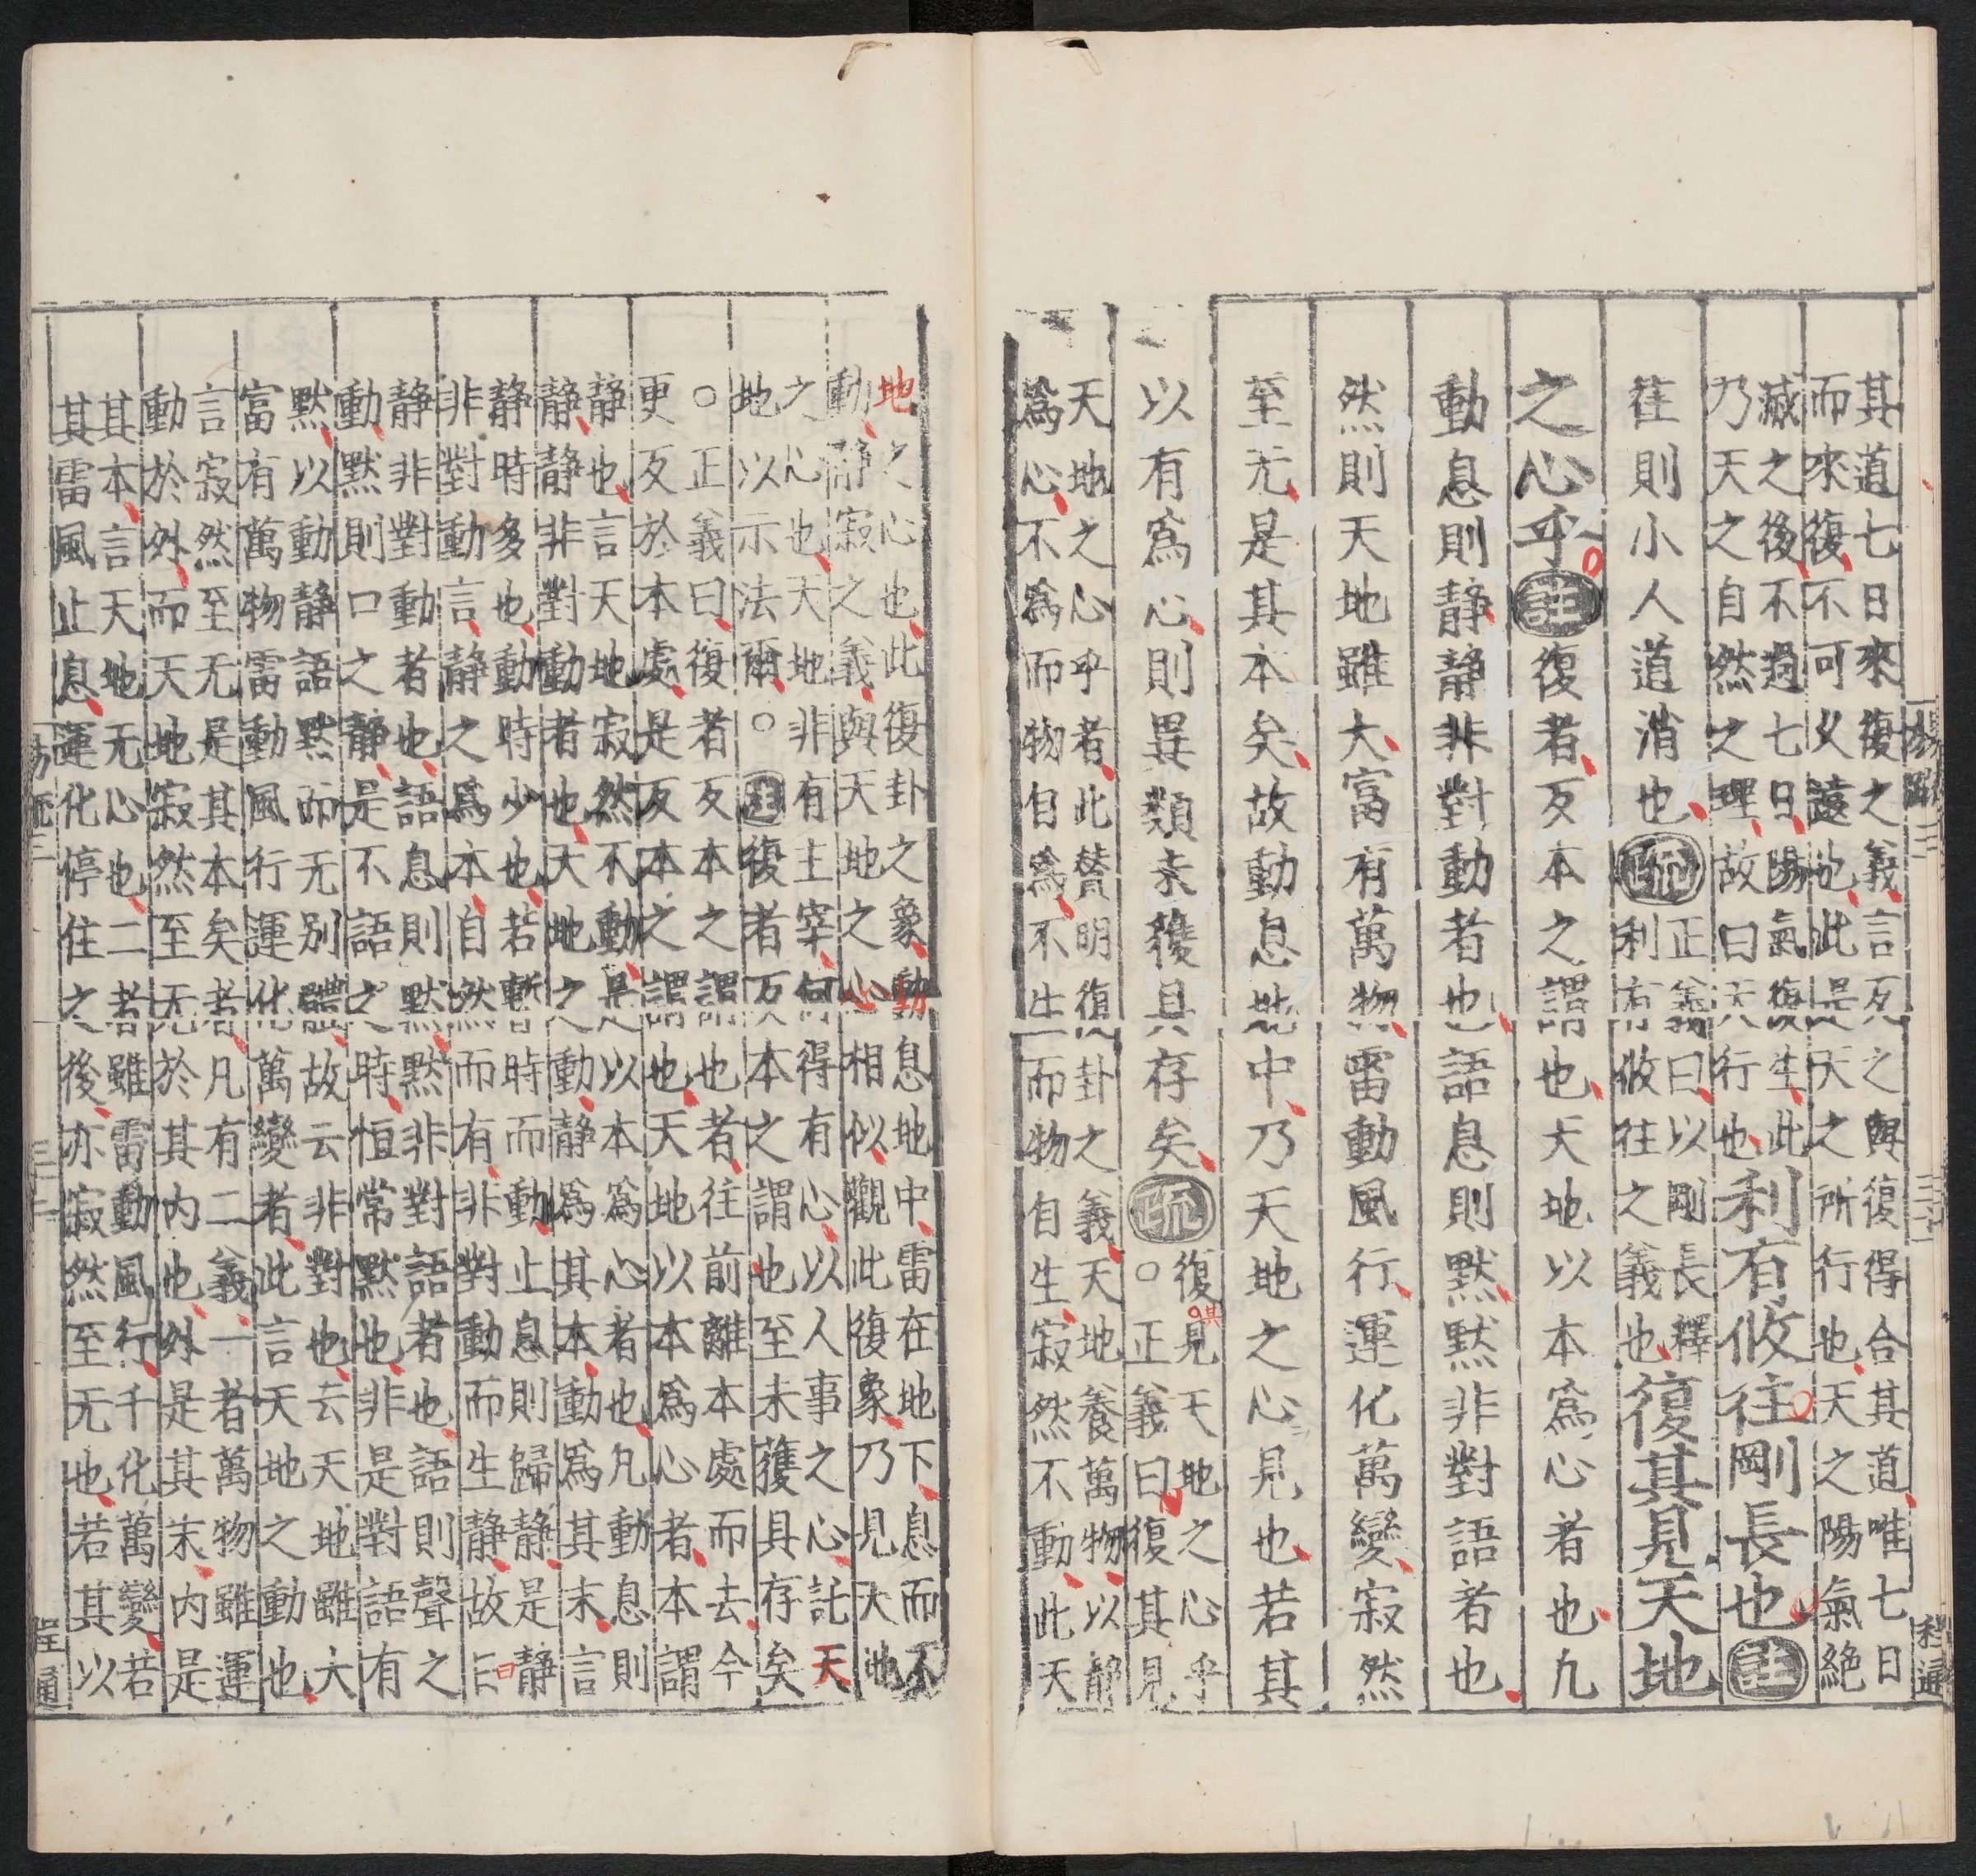 其道七日來復之義言反之與復得合其道唯七日
而來復不可久遠也此是天之所行也天之陽氣絶
滅之後不過七日陽氣復生此
乃天之自然之理故曰天行也
利有攸往剛長也註
往則小人道消也疏
正義曰以剛長釋
利有攸往之義也
復其見天地
之心乎註復者反本之謂也天地以本爲心者也凡
動息則静静非對動者也語息則默默非對語者也
然則天地雖大富有萬物雷動風行運化萬變寂然
至无是其本矣故動息地中乃天地之心見也若其
以有爲心則異類未獲具存矣疏
復其見天地之心乎
○正義曰復其見
天地之心乎者此賛明復卦之義天地養萬物以静
爲心不爲而物自爲不生而物自生寂然不動此天
地之心也此復卦之象動息地中雷在地下息而不
動静寂之義與天地之心相似觀此復象乃見天地
之心也天地非有主宰何得有心以人事之心託天
地以示法爾○註復者反本之謂也至未獲具存矣
○正義曰復者反本之謂也者往前離本處而去今
更反於本處是反本之謂也天地以本爲心者本謂
静也言天地寂然不動是以本爲心者也凡動息則
静静非對動者也天地之動静爲其本動爲其末言
静時多也動時少也若暫時而動止息則歸静是静
非對動言静之爲本自然而有非對動而生静故曰
静非對動者也語息則默默非對語者也語則聲之
動默則口之静是不語之時恒常默也非是對語有
默以動静語默而无別體故云非對也云天地雖大
富有萬物雷動風行運化萬變者此言天地之動也
言寂然至无是其本矣者凡有二義一者萬物雖運
動於外而天地寂然至无於其内也外是其末内是
其本言天地无心也二者雖雷動風行千化萬變若
其雷風止息運化停住之後亦寂然至无也若其以
易疏三
三十二
程通